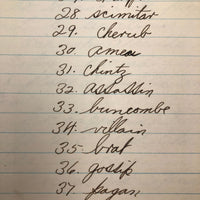 28. scimitar
29. cherub
30. amen
31. chintz
32. assassin
33. buncombe
34. villain
35. brat
36. gossip
37. pagan